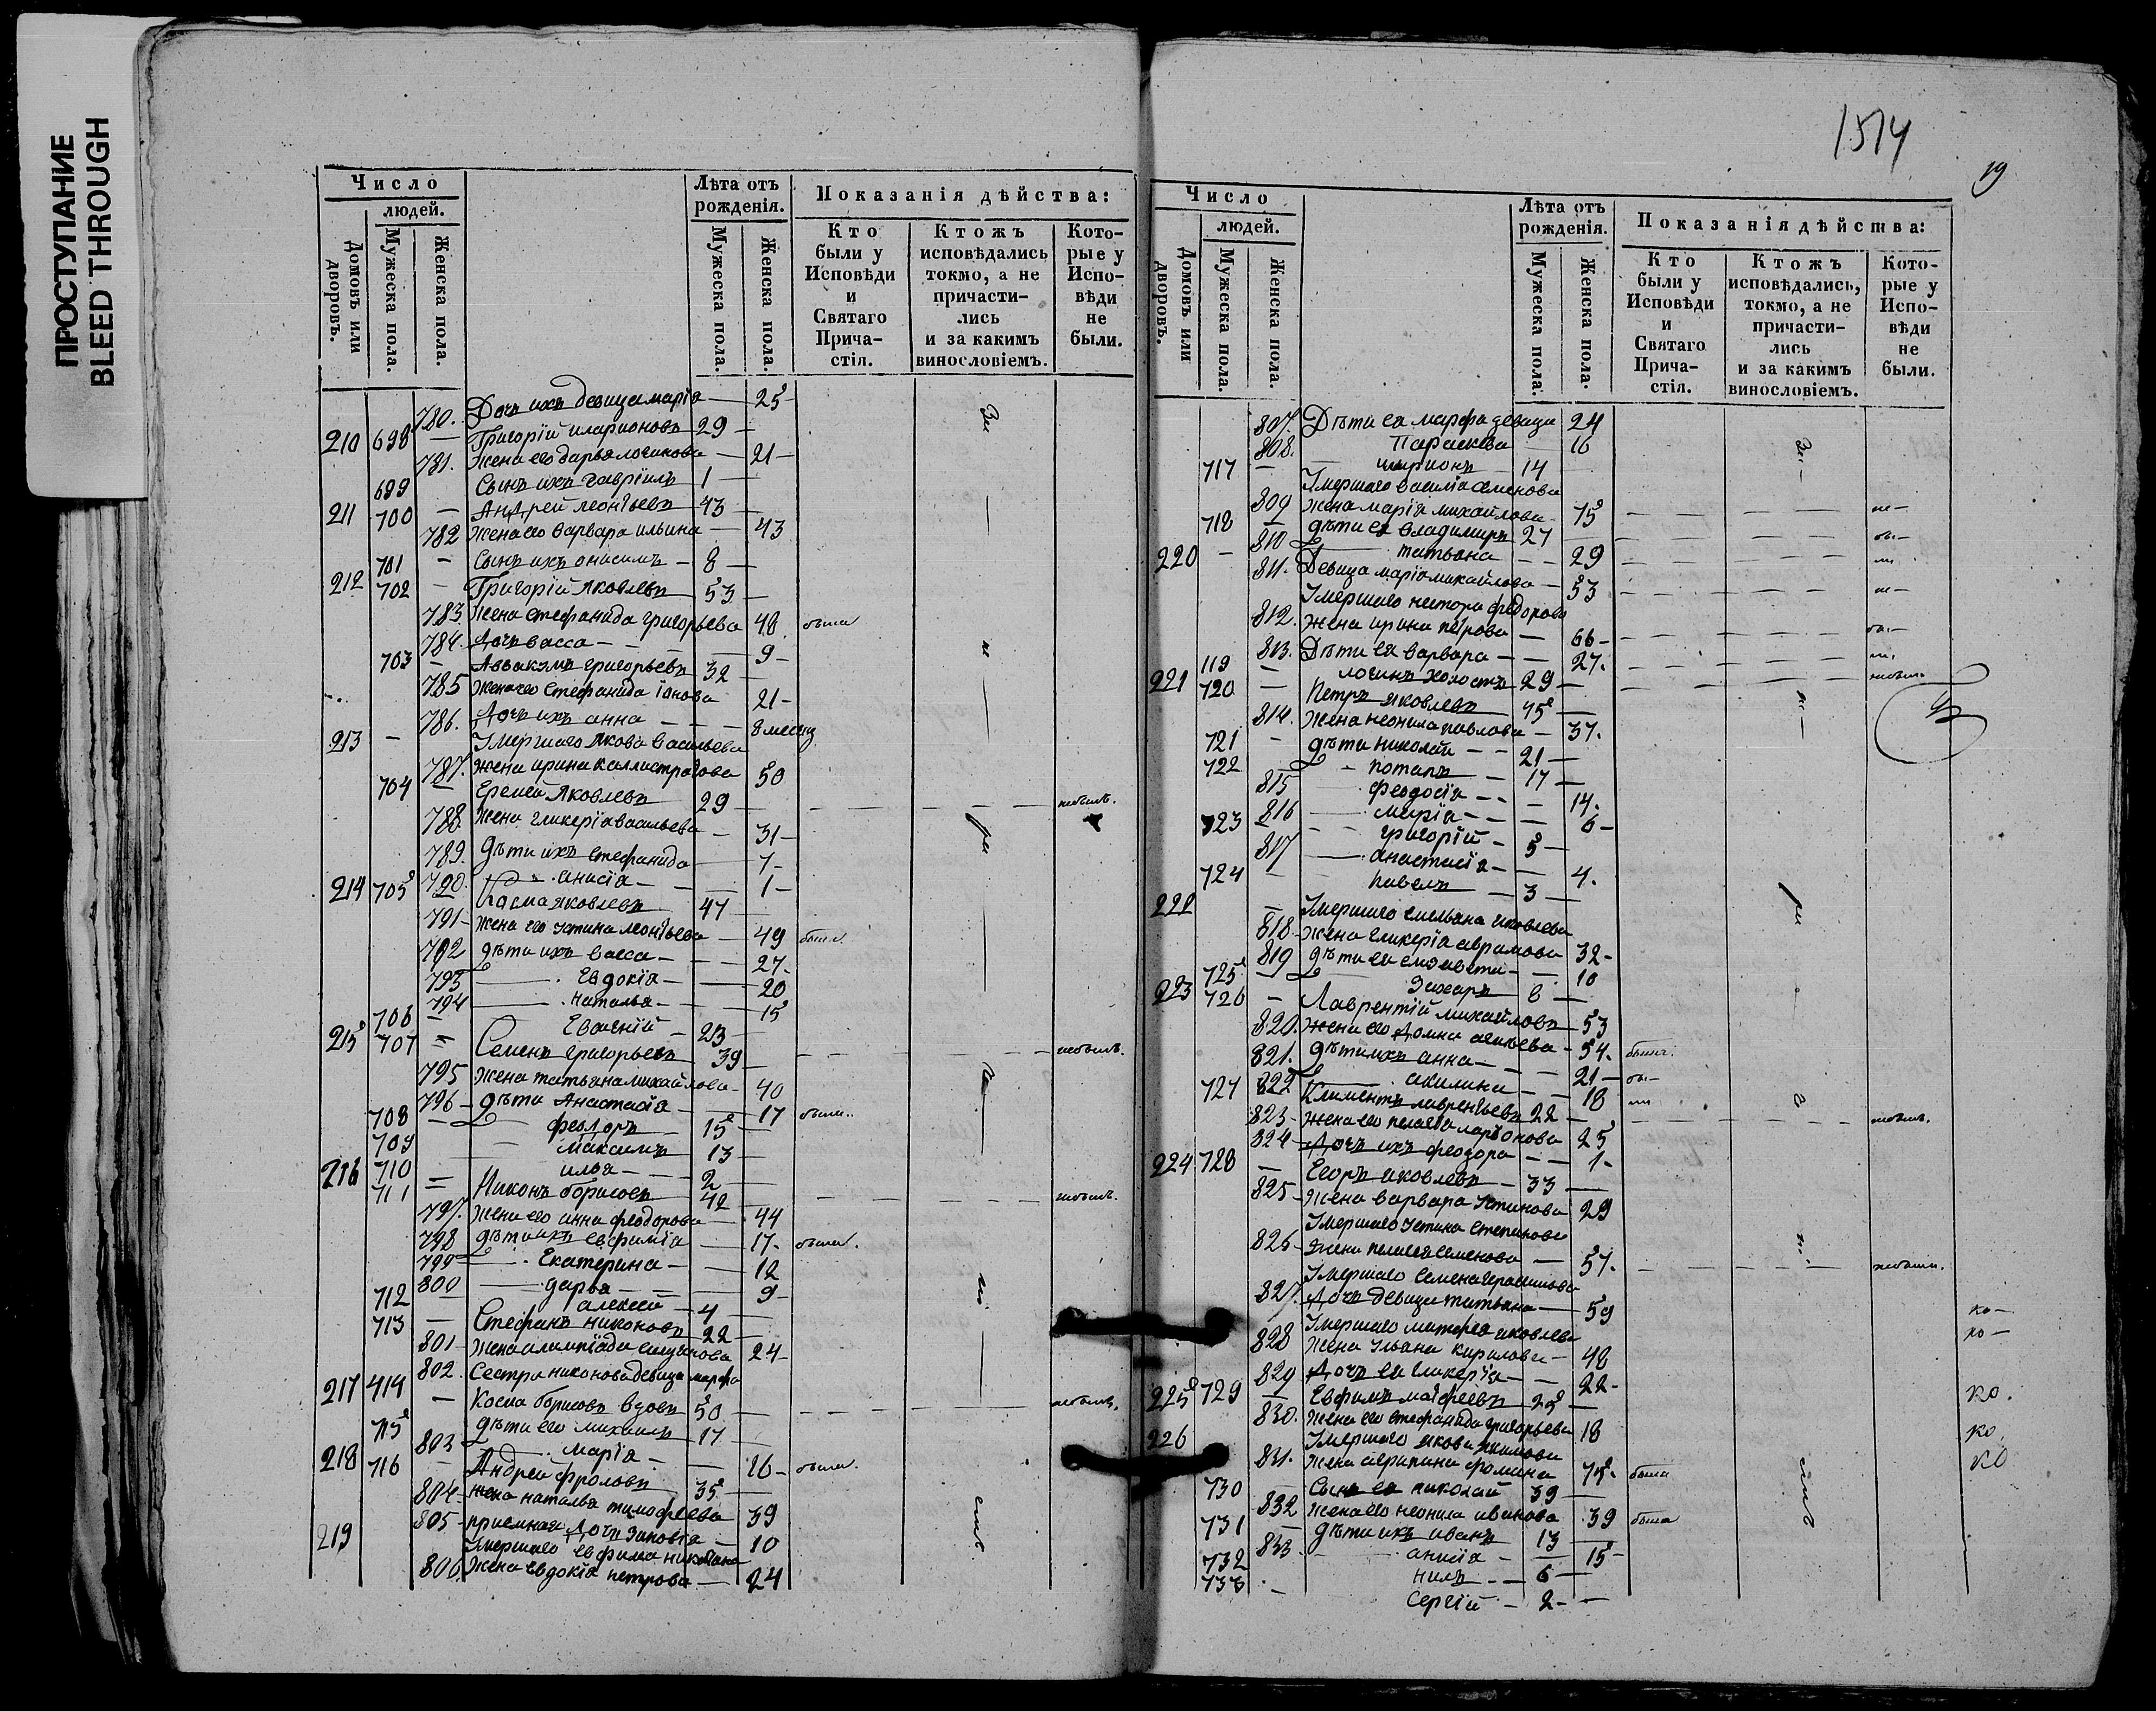 ПРОСТУПАНИЕ
BLEED THROUGH
Число
людей.
Домовъ или дворовъ.
Мужеска пола.
Женска пола.
Лѣта отъ рожденія.
Мужеска пола.
Женска пола.
Показанія дѣйства:
Кто были у Исповѣди и Святаго Прича-стія.
Ктожъ исповѣдались токмо, а не причасти-лись и за какимъ винословіемъ.
Кото-рые у Испо-вѣди не были.
780. Дочь ихъ девица марія — 25
210 698 — Григорій иларионовъ 29 —
781. Жена его дарья логинова — 21 —
699 Сынъ ихъ гавріилъ 1 —
211 700 — Андрей леонтьевъ 43 —
782 Жена его варвара ильина — 43
701 — Сынъ ихъ онисимъ — 8 —
212 702 — Григорій Яковлевъ 53 —
783. Жена стефанида григорьева 48 была
784. Дочь васса — 9 —
703 — Аввакумъ григорьевъ 32 —
785 Жена его стефанида іонова 21 —
786. Дочь ихъ анна — 8 месец
213 — Умершаго Якова васильева
787. Жена ирина каллистратова 50
704 — Еремей Яковлевъ 29 — небылъ.
788. Жена гликерія васильева — 31 —
789. дѣти ихъ стефанида — 7 —
790. анисія — 1 —
214 705 Косма яковлевъ 47 —
791 — Жена его устина леонтьева — 49 была
792 дѣти ихъ васса — 27 —
793 Евдокія — 20
794 наталья — 15
706 — Евгеній — 23 —
215 707 — Семенъ григорьевъ 39 — небылъ.
795 Жена татьяна михайлова — 40
796 — дѣти Анастасія — 17 были.
708 — феодоръ 15 —
709 — максимъ 13 —
710 — илья — 2 —
216 711 — Никонъ борисовъ 42 — небылъ.
797. Жена его анна феодорова — 44
798 дѣти ихъ евфимія — 17 — была.
799 Екатерина — 12
800 дарья — 9 —
712 алексей — 4 —
713 — Стефанъ никоновъ 22 —
801 Жена олимпіада 24 —
802. Сестра никонова девица марфа
217 414 — Косма борисовъ вдовъ 50 — небылъ.
715 дѣти его михаилъ 17 —
803 марія — 16 — была.
218 716 — Андрей фроловъ 35 —
804. Жена наталья тимофеева 39
805 — приемная дочь зиновія — 10
219 Умершаго евфима
806. Жена евдокія петрова — 24
1514
19
Число
людей.
Домовъ или дворовъ.
Мужеска пола.
Женска пола.
Лѣта отъ рожденія.
Мужеска пола.
Женска пола.
Показанія дѣйства:
Кто были у Исповѣди и Святаго Прича-стія.
Ктожъ исповѣдались, токмо, а не причасти-лись и за какимъ винословіемъ.
Кото-рые у Испо-вѣди не были.
807. Дѣти ея марфа девица 24
808. Параскева 16
717 — иларионъ — 14 —
Умершаго василія семенова
809 Жена марія михайлова 75 — не —
718 — дѣти ея владимиръ 27 — бы —
810 татьяна — 29
220 — 811. Девица марія михайлова — 53 — не —
Умершаго нестора феодорова
812. Жена ирина петрова — 66 — бы —
813. Дѣти ея варвара — 27.
119 — логинъ холостъ 29 — небылъ
221 720 — Петръ яковлевъ 45 —
814. Жена неонила павлова — 37.
721 — дѣти николай — 21 —
722 потапъ — 17 —
815 феодосія — 14.
816 марія — 6 —
723 — григорій — 5 —
817 анастасія — 4.
724 — павелъ — 3 —
222 — Умершаго емельяна яковлева
818 Жена гликерія аврамова 32 —
819 дѣти ея елизавета — 10
725 — Захаръ — 8 —
223 726 — Лаврентій михайловъ — 53
820. Жена его домна — 54. были.
821. дѣти ихъ анна — 21 — бы —
822 акилина — 18
727 Климентъ лаврентьевъ 22 — небылъ.
823 — Жена его пелагія ларіонова 25
824 — Дочь ихъ феодора — 1 —
224 728 — Егоръ яковлевъ — 33 —
825 — Жена варвара устинова 29
Умершаго устина степанова
826 — Жена пелагея семенова — 57. — небыли.
Умершаго семена герасимова
827. Дочь девица татьяна — 59
Умершаго матфея яковлева
828 Жена ульяна кирилова — 48
829 Дочь ея гликерія — 22 —
225 729 — Евфимъ матфеевъ 25 —
830. Жена его стефанида григорьева 18
226 Умершаго якова
831. Жена агрипина фомина 75. была
730 — Сынъ ея николай 39 —
832 Жена его неонила иванова 39 была
731 — дѣти ихъ иванъ 13 —
833 анисія — 15 —
732 нилъ — 6 —
733 — Сергій — 2 —
ко —
ко —
ко.
ко.
ко